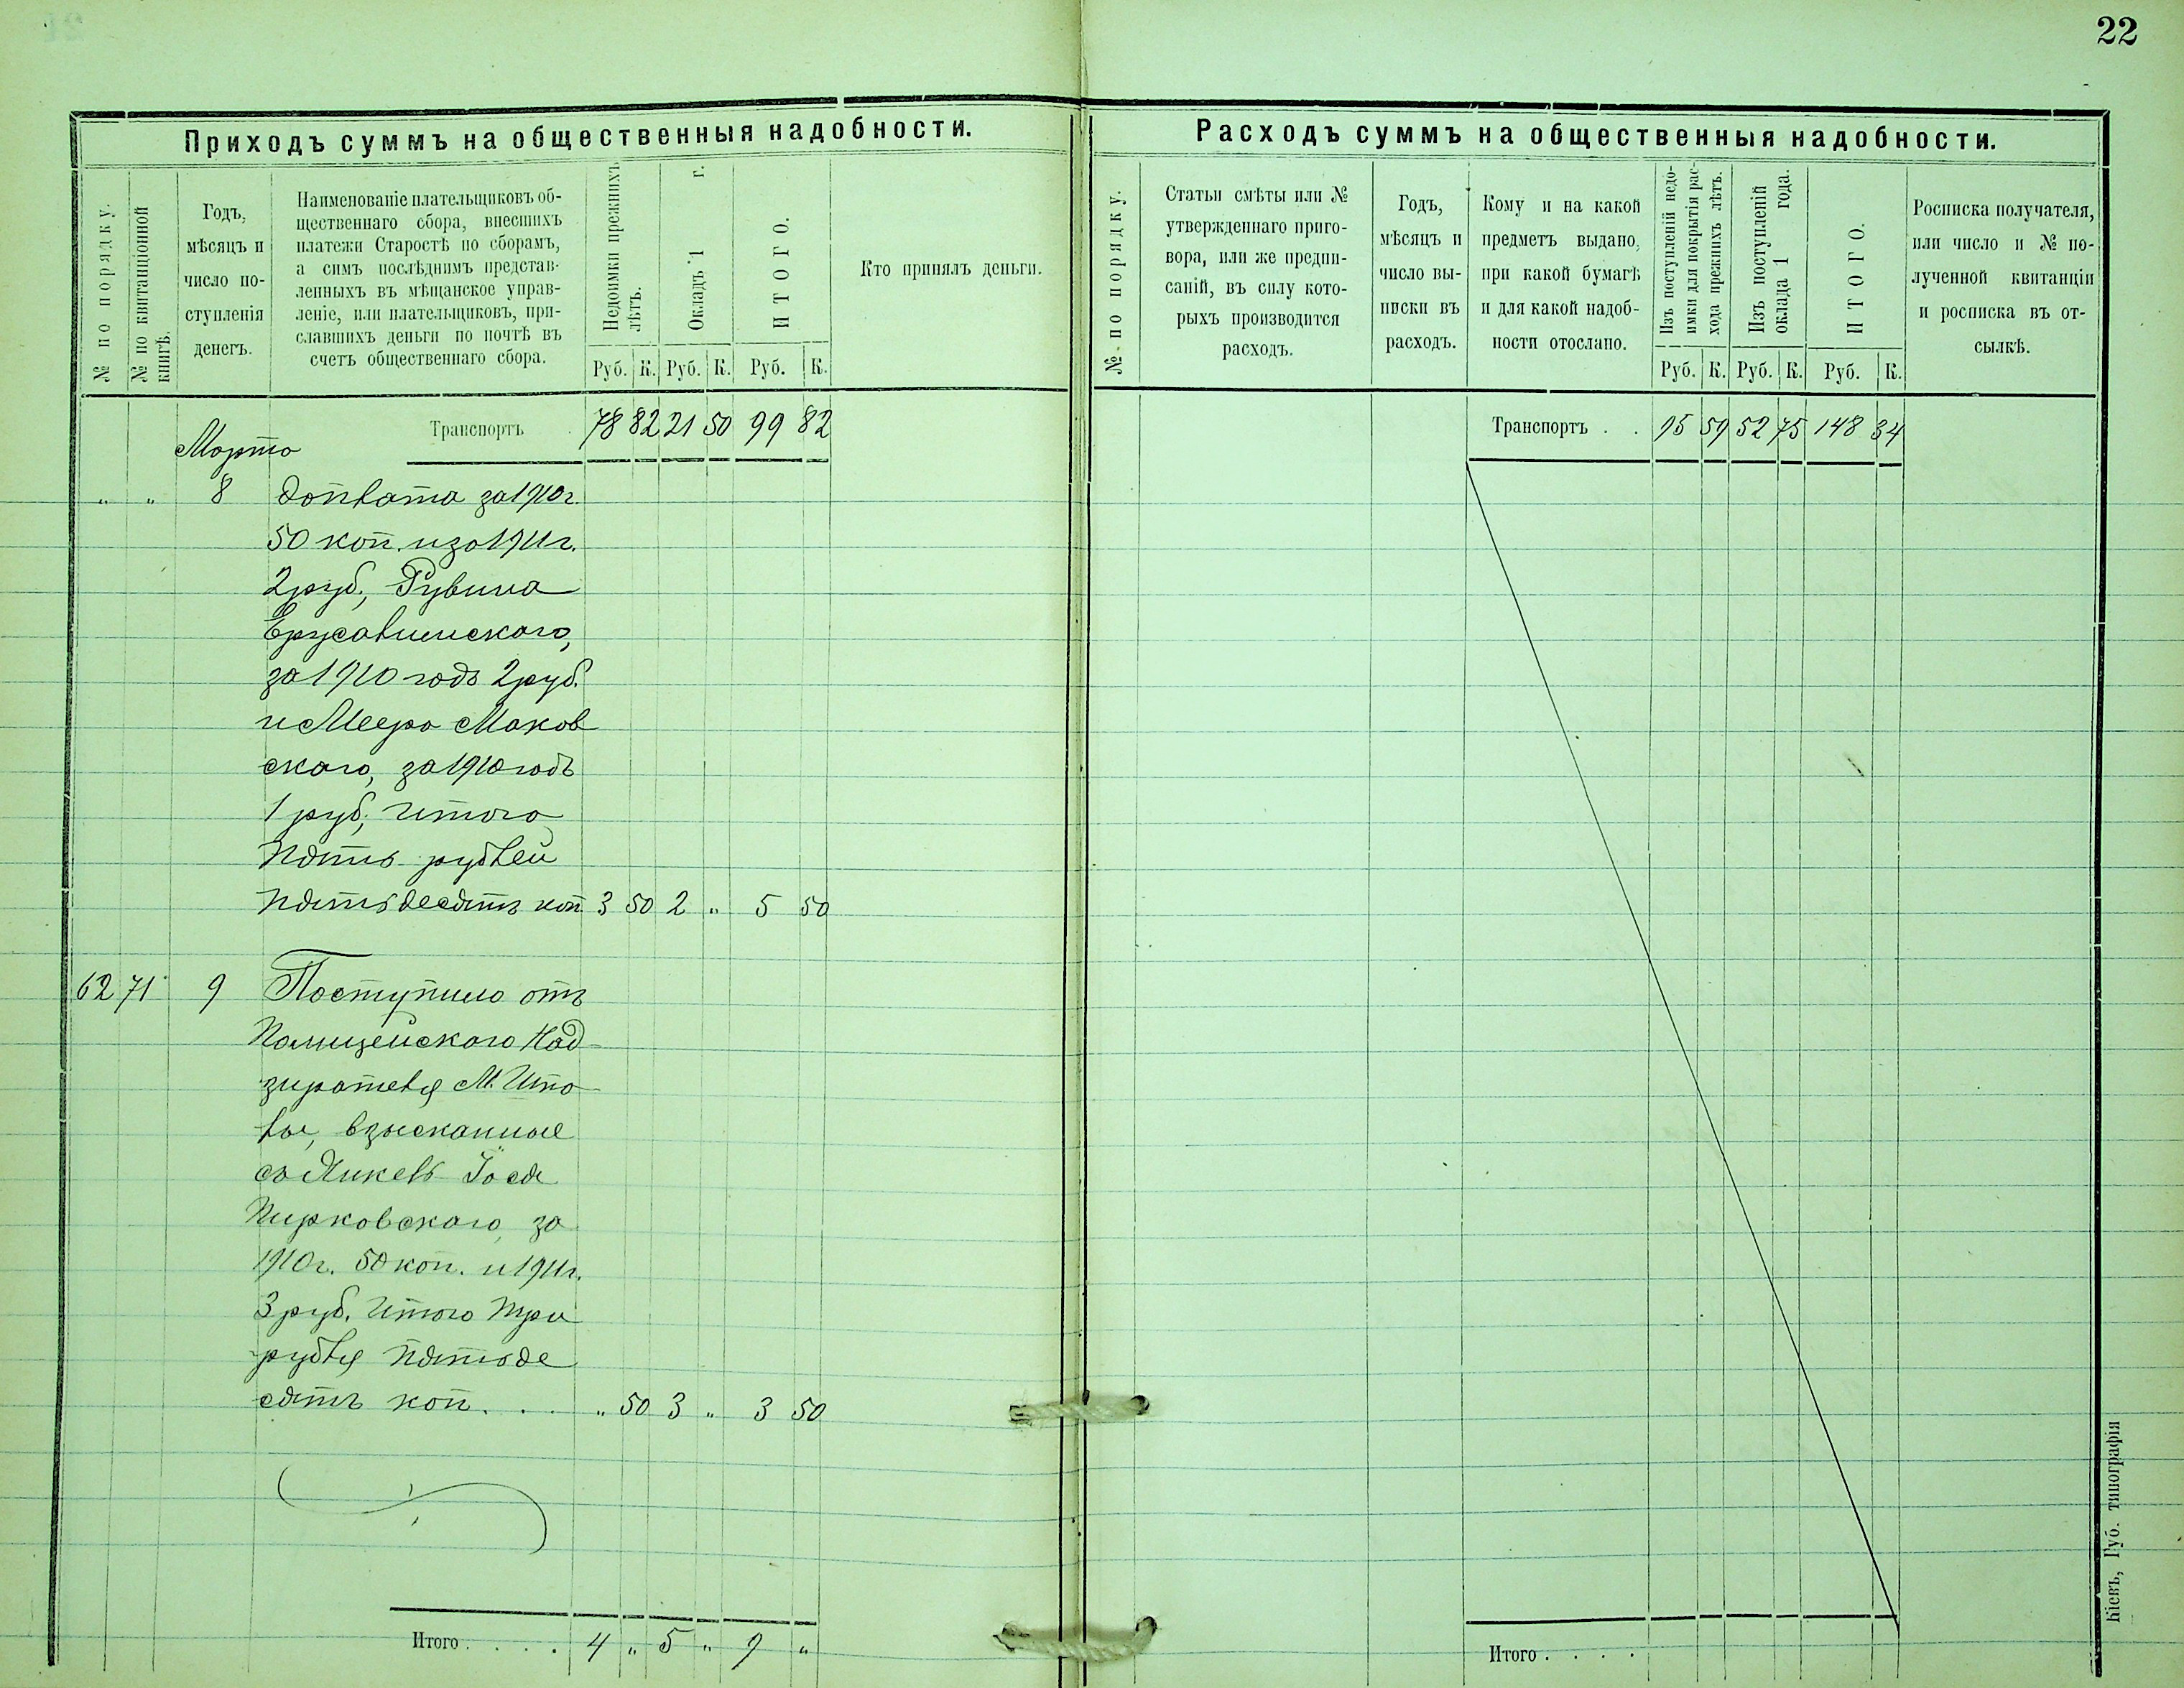 22
Приходъ суммъ на общественныя надобности.
№ по порядку.
№ по квитанціонной
книгѣ.
Годъ,
мѣсяцъ и
число по-
ступленія
денегъ.
Наименованіе плательщиковъ об-
щественнаго сбора, внесшихъ
платежи Старостѣ по сборамъ,
а симъ послѣднимъ представ-
ленныхъ въ мѣщанское управ-
леніе, или плательщиковъ, при-
славшихъ деньги по почтѣ въ
счетъ общественнаго сбора.
Недоимки прежнихъ
лѣтъ.
Окладъ 1 г.
ИТОГО.
Руб. К. Руб. К. Руб. К.
Кто принялъ деньги.
Транспортъ 78 82 21 50 99 82
Марта
„ „ 8 доплата за 1910 г.
50 коп. и за 1911 г.
2 руб., Рувина
Ерусалимскаго,
за 1910 годъ 2 руб.
и Меера Маков
скаго, за 1910 годъ
1 руб, итого
пять рублей
пятьдесятъ коп 3 50 2 „ 5 50
62 71 9 Поступило отъ
Полицейскаго Над-
зирателя М.
взысканные
съ Янкеля Іося
Пирковскаго, за
1910 г. 50 коп. и 1911 г.
3 руб. итого три
рубля пятьде
сятъ коп. . . „ 50 3 „ 3 50
Итого . . . . 4 „ 5 „ 9 „
Расходъ суммъ на общественныя надобности.
№ по порядку.
Статьи смѣты или №
утвержденнаго приго-
вора, или же предпи-
саній, въ силу кото-
рыхъ производится
расходъ.
Годъ,
мѣсяцъ и
число вы-
писки въ
расходъ.
Кому и на какой
предметъ выдано,
при какой бумагѣ
и для какой надоб-
ности отослано.
Изъ поступленій недо-
имки для покрытія рас-
хода прежнихъ лѣтъ.
Изъ поступленій
оклада 1 года.
ИТОГО.
Руб. К. Руб. К. Руб. К.
Росписка получателя,
или число и № по-
лученной квитанціи
и росписка въ от-
сылкѣ.
Транспортъ . . 95 59 52 75 148 34
Итого . . . .
Кіевъ, Губ. типографія